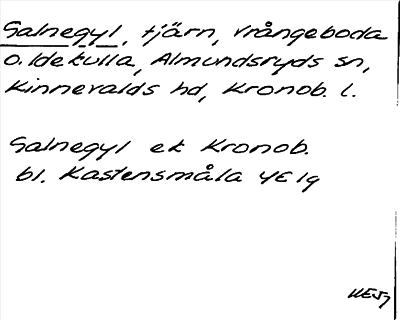 Galnegyl, tjärn, Vrångeboda
o. Idekulla, Almundsryds sn,
Kinnevalds hd, Kronob. l.
Galnegyl ek Kronob.
bl. Kastensmåla 4E1g